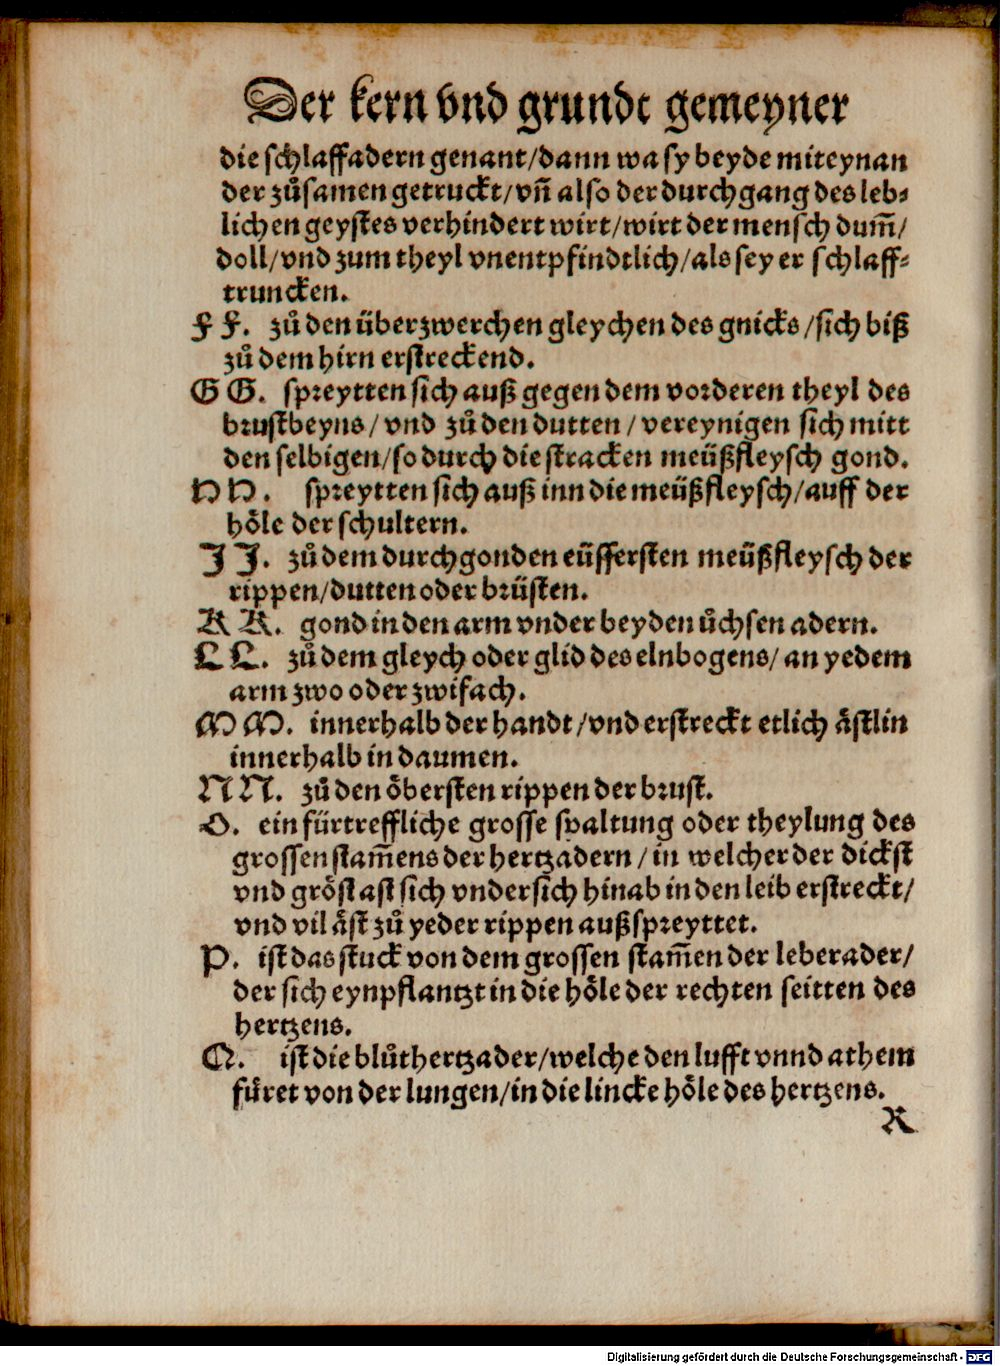 Der kern vnd grundt gemeyner
die schlaffadern genant/dann wa sy beyde miteynan
der zuͦsamen getruckt/vn̄ also der durchgang des leb⸗
lichen geystes verhindert wirt/wirt der mensch dum̄/
doll/vnd zum theyl vnentpfindtlich/als sey er schlaff⸗
truncken.
F F. zuͦ den überzwerchen gleychen des gnicks/sich biß
zuͦ dem hirn erstreckend.
G G. spreytten sich auß gegen dem vorderen theyl des
brustbeyns/vnd zuͦ den dutten/vereynigen sich mitt
den selbigen/so durch die stracken meüßfleysch gond.
H H. spreytten sich auß inn die meüßfleysch/auff der
hoͤle der schultern.
J J. zuͦ dem durchgonden eüssersten meüßfleysch der
rippen/dutten oder brüsten.
K K. gond in den arm vnder beyden uͦchsen adern.
L L. zuͦ dem gleych oder glid des elnbogens/an yedem
arm zwo oder zwifach.
M M. innerhalb der handt/vnd erstreckt etlich aͤstlin
innerhalb in daumen.
N N. zuͦ den oͤbersten rippen der brust.
O. ein fürtreffliche grosse spaltung oder theylung des
grossen stam̄ens der hertzadern/in welcher der dickst
vnd groͤst ast sich vndersich hinab in den leib erstreckt/
vnd vil aͤst zuͦ yeder rippen außspreyttet.
P. ist das stuck von dem grossen stam̄en der leberader/
der sich eynpflantzt in die hoͤle der rechten seitten des
hertzens.
Q. ist die bluͦthertzader/welche den lufft vnnd athem
füret von der lungen/in die lincke hoͤle des hertzens.
R
Digitalisierung gefördert durch die Deutsche Forschungsgemeinschaft - DFG